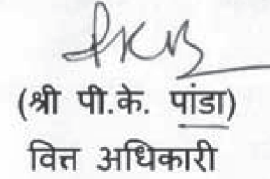 (श्री पी.के. पांडा)
वित्त अधिकारी